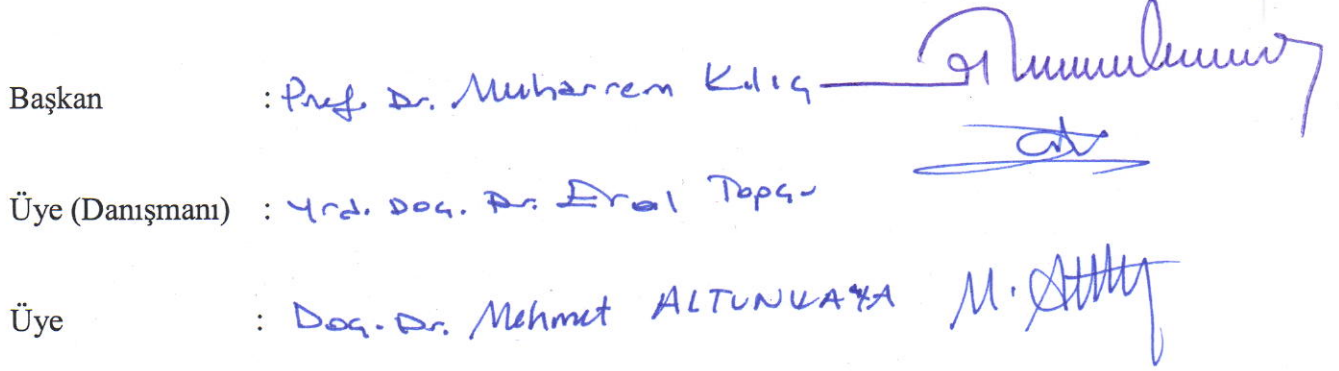 Başkan : Prof. Dr. Muharrem Kılıç
Üye (Danışmanı) : Yrd. Doç. Dr. Erol Topçu
Üye : Doç. Dr. Mehmet ALTUNKAYA M.